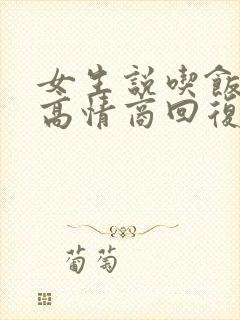 女生説喫飯
高情商回復
葡萄